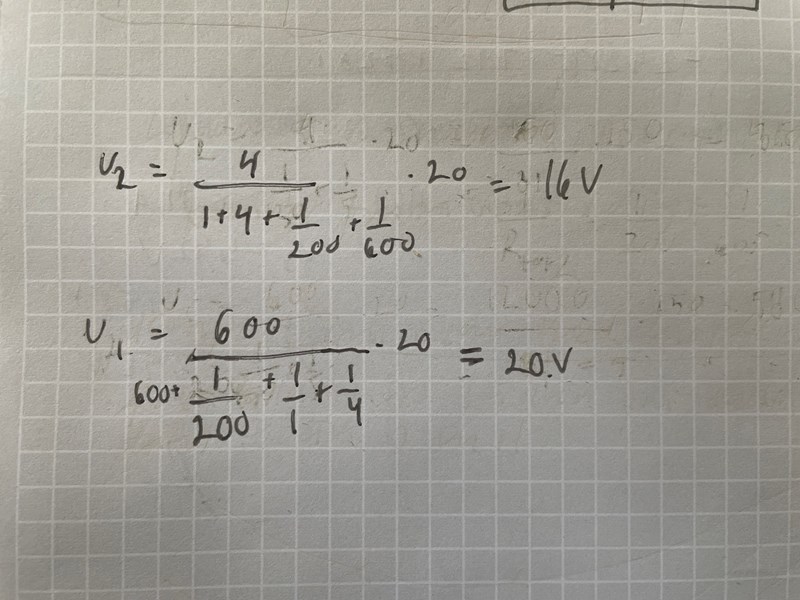 U₂ = 4 / (1+4+1/200+1/600) · 20 = 16 V
U₁ = 600 / (600+1/200+1/1+1/4) · 20 = 20 V